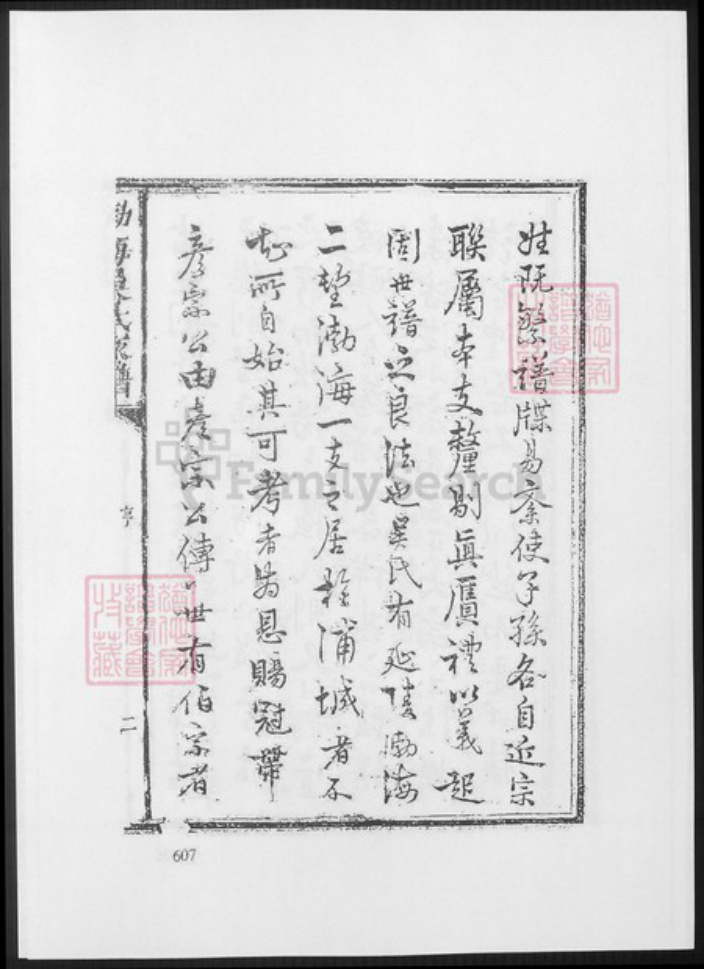 姓既繁譜牒易紊使子孫各自近宗
聯屬本支釐剔真贋禮以義起
固世譜之良法也吳氏有延陵渤海
二望渤海一支之居 浦城者不
知所自始其可考者為恩賜冠帶
彥宗公由彥宗公傳 世有伯宗者
渤海吳氏家譜
亨
二
607
FamilySearch